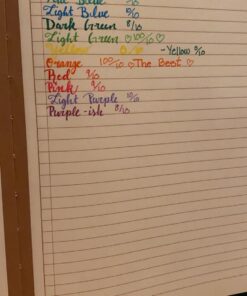 Blue
Light Blue 9/10
Dark Green 8/10
Light Green ♡100/10♡
Yellow 0/10 -Yellow 9/10
Orange 100/10 ♡The Best♡
Red 9/10
Pink 9/10
Light Purple 10/10
Purple-ish 8/10